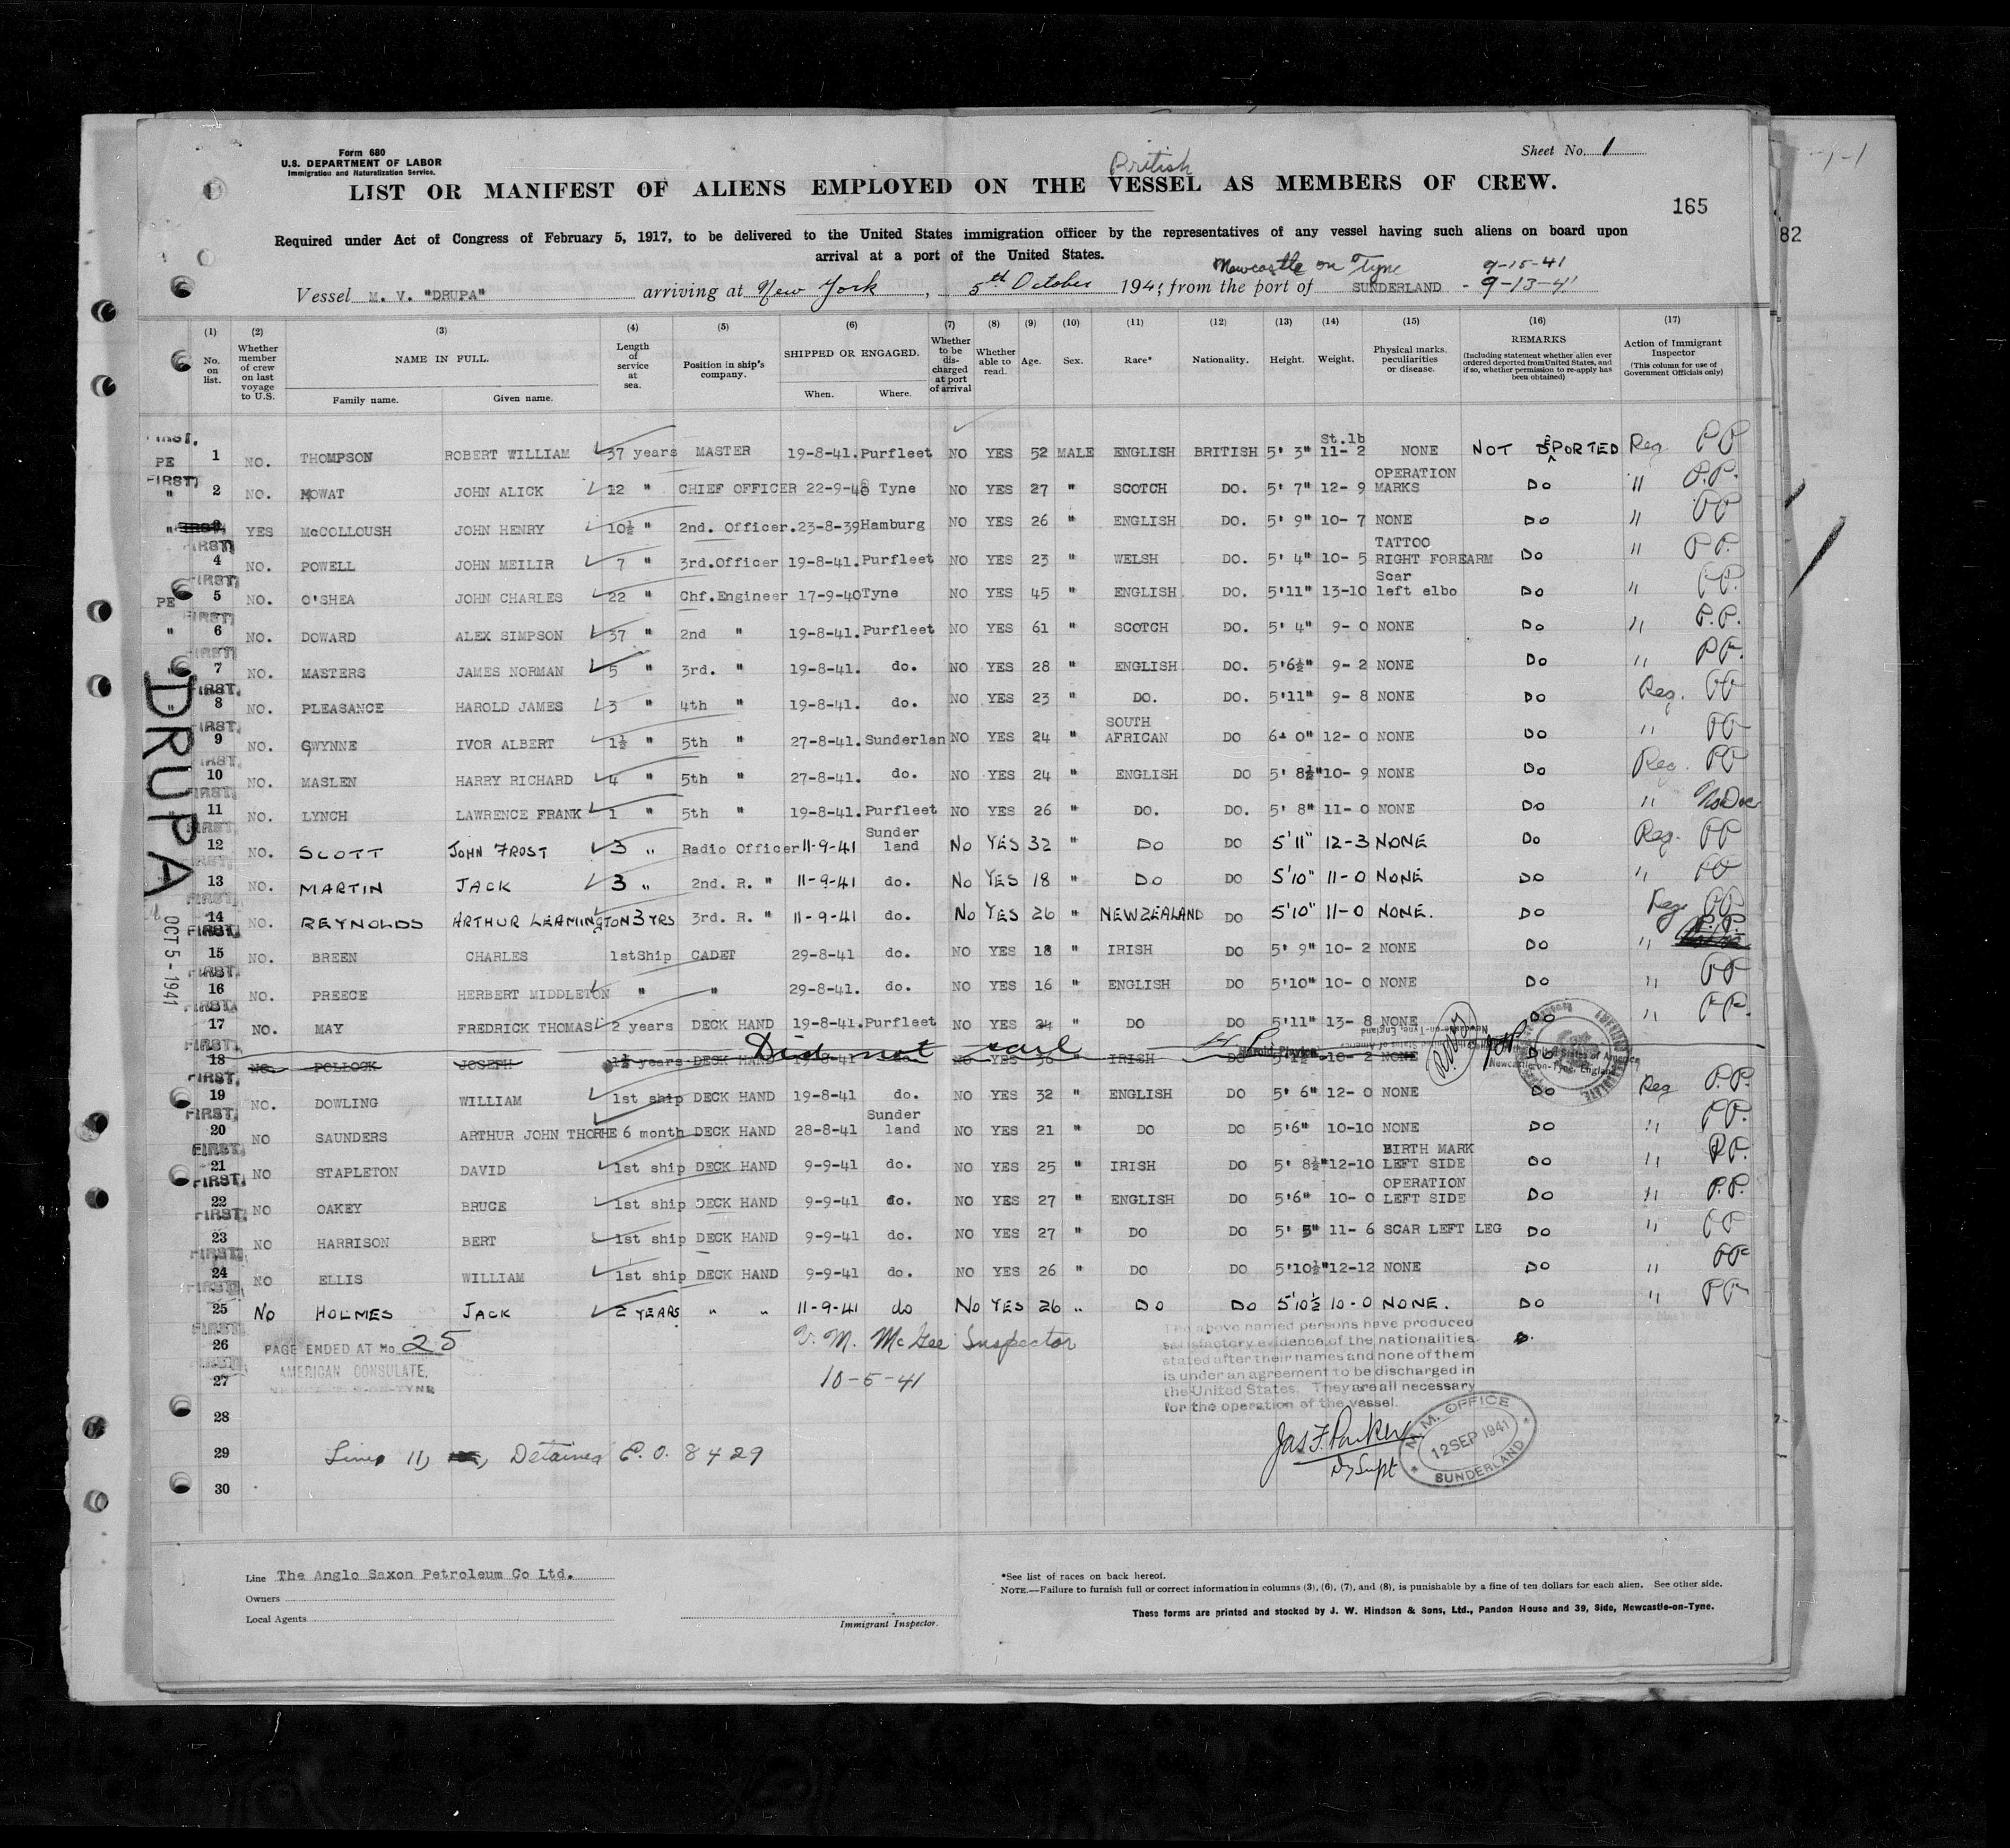 Form 680
U.S. DEPARTMENT OF LABOR
Immigration and Naturalization Service.
Sheet No. 1
British
LIST OR MANIFEST OF ALIENS EMPLOYED ON THE VESSEL AS MEMBERS OF CREW.
165
82
Required under Act of Congress of February 5, 1917, to be delivered to the United States immigration officer by the representatives of any vessel having such aliens on board upon
arrival at a port of the United States.
Newcastle on Tyne 9-15-41
Vessel M. V. "DRUPA" arriving at New York, 5th October 1941 from the port of SUNDERLAND - 9-13-41
(1) (2) (3) (4) (5) (6) (7) (8) (9) (10) (11) (12) (13) (14) (15) (16) (17)
No. on list.
Whether member of crew on last voyage to U.S.
NAME IN FULL.
Family name. Given name.
Length of service at sea.
Position in ship's company.
SHIPPED OR ENGAGED.
When. Where.
Whether to be discharged at port of arrival
Whether able to read.
Age.
Sex.
Race*
Nationality.
Height.
Weight.
Physical marks, peculiarities or disease.
REMARKS
(Including statement whether alien ever ordered deported from United States, and if so, whether permission to re-apply has been obtained)
Action of Immigrant Inspector
(This column for use of Government Officials only)
FIRST, PE 1 NO. THOMPSON ROBERT WILLIAM 37 years MASTER 19-8-41. Purfleet NO YES 52 MALE ENGLISH BRITISH 5' 3" St.lb 11- 2 NONE NOT DEPORTED Reg PP
FIRST, " 2 NO. MOWAT JOHN ALICK 12 " CHIEF OFFICER 22-9-40 Tyne NO YES 27 " SCOTCH DO. 5' 7" 12- 9 OPERATION MARKS DO " P.P.
" 3 YES McCOLLOUSH JOHN HENRY 10½ " 2nd. Officer. 23-8-39 Hamburg NO YES 26 " ENGLISH DO. 5' 9" 10- 7 NONE DO " PP
FIRST, 4 NO. POWELL JOHN MEILIR 7 " 3rd.Officer 19-8-41. Purfleet NO YES 23 " WELSH DO. 5' 4" 10- 5 TATTOO RIGHT FOREARM DO " PP.
FIRST, PE 5 NO. O'SHEA JOHN CHARLES 22 " Chf.Engineer 17-9-40 Tyne NO YES 45 " ENGLISH DO. 5'11" 13-10 Scar left elbo DO " PP.
FIRST, " 6 NO. DOWARD ALEX SIMPSON 37 " 2nd " 19-8-41. Purfleet NO YES 61 " SCOTCH DO. 5' 4" 9- 0 NONE DO " P.P.
FIRST, 7 NO. MASTERS JAMES NORMAN 5 " 3rd. " 19-8-41. do. NO YES 28 " ENGLISH DO. 5'6½" 9- 2 NONE DO " PP.
FIRST, " 8 NO. PLEASANCE HAROLD JAMES 3 " 4th " 19-8-41. do. NO YES 23 " DO. DO. 5'11" 9- 8 NONE DO Reg. PP
FIRST, 9 NO. GWYNNE IVOR ALBERT 1½ " 5th " 27-8-41. Sunderlan NO YES 24 " SOUTH AFRICAN DO 6- 0" 12- 0 NONE DO " PP
FIRST, 10 NO. MASLEN HARRY RICHARD 4 " 5th " 27-8-41. do. NO YES 24 " ENGLISH DO 5' 8½" 10- 9 NONE DO Reg. PP
FIRST, 11 NO. LYNCH LAWRENCE FRANK 1 " 5th " 19-8-41. Purfleet NO YES 26 " DO. DO. 5' 8" 11- 0 NONE DO " No Doc
FIRST, 12 NO. SCOTT JOHN FROST 3 " Radio Officer 11-9-41 Sunder land NO YES 32 " DO DO 5'11" 12-3 NONE DO Reg. PP
FIRST, 13 NO. MARTIN JACK 3 " 2nd. R. " 11-9-41 do. NO YES 18 " DO DO 5'10" 11-0 NONE DO " PP
FIRST, 14 NO. REYNOLDS ARTHUR LEAMINGTON 3 YRS 3rd. R. " 11-9-41 do. NO YES 26 " NEW ZEALAND DO 5'10" 11-0 NONE. DO Reg PP
FIRST, 15 NO. BREEN CHARLES 1stShip CADET 29-8-41 do. NO YES 18 " IRISH DO 5' 9" 10- 2 NONE DO " P.P.
FIRST, 16 NO. PREECE HERBERT MIDDLETON " " 29-8-41. do. NO YES 16 " ENGLISH DO 5'10" 10- 0 NONE DO " PP
FIRST, 17 NO. MAY FREDRICK THOMAS 2 years DECK HAND 19-8-41. Purfleet NO YES 24 " DO DO 5'11" 13- 8 NONE DO " PP.
18 NO. POLLOCK JOSEPH 1½ years DECK HAND 19-8-41 do. NO YES 30 " IRISH DO 10- 2 NONE DO
Did not sail
Newcastle-on-Tyne, England
FIRST, 19 NO. DOWLING WILLIAM 1st ship DECK HAND 19-8-41 do. NO YES 32 " ENGLISH DO 5' 6" 12- 0 NONE DO Reg P.P.
FIRST, 20 NO SAUNDERS ARTHUR JOHN THORHE 6 month DECK HAND 28-8-41 Sunder land NO YES 21 " DO DO 5'6" 10-10 NONE DO " PP.
FIRST, 21 NO STAPLETON DAVID 1st ship DECK HAND 9-9-41 do. NO YES 25 " IRISH DO 5' 8½" 12-10 BIRTH MARK LEFT SIDE DO " PP.
FIRST, 22 NO OAKEY BRUCE 1st ship DECK HAND 9-9-41 do. NO YES 27 " ENGLISH DO 5'6" 10- 0 OPERATION LEFT SIDE DO " P.P.
FIRST, 23 NO HARRISON BERT 1st ship DECK HAND 9-9-41 do. NO YES 27 " DO DO 5' 5" 11- 6 SCAR LEFT LEG DO " PP
FIRST, 24 NO ELLIS WILLIAM 1st ship DECK HAND 9-9-41 do. NO YES 26 " DO DO 5'10½" 12-12 NONE DO " PP
FIRST, 25 NO HOLMES JACK 2 YEARS " " 11-9-41 do NO YES 26 " DO DO 5'10½ 10-0 NONE. DO " PP
26 PAGE ENDED AT No. 25
AMERICAN CONSULATE,
V. M. McGee Inspector
27 10-5-41
28
29 Lines 11, Detained E.O. 8429
30
The above named persons have produced
satisfactory evidence of the nationalities
stated after their names and none of them
is under an agreement to be discharged in
the United States. They are all necessary
for the operation of the vessel.
Jas F. Parker
Dy Supt
M.M. OFFICE
12 SEP 1941
SUNDERLAND
DRUPA
OCT 5 - 1941
Line The Anglo Saxon Petroleum Co Ltd.
Owners
Local Agents
Immigrant Inspector.
*See list of races on back hereof.
NOTE.—Failure to furnish full or correct information in columns (3), (6), (7), and (8), is punishable by a fine of ten dollars for each alien. See other side.
These forms are printed and stocked by J. W. Hindson & Sons, Ltd., Pandon House and 39, Side, Newcastle-on-Tyne.